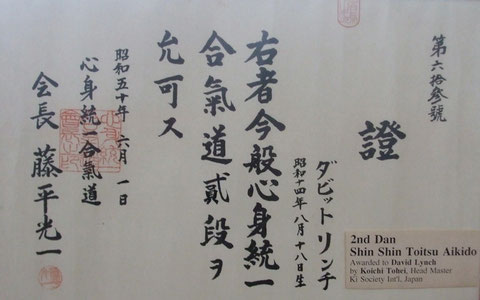 第六拾参號
證
ダビット リンチ
昭和十四年八月十八日生
右者今般心身統一
合氣道貳段ヲ
允可ス
昭和五十年 六月 一日
心身統一合氣道
会長 藤平光一
2nd Dan
Shin Shin Toitsu Aikido
Awarded to David Lynch
by Koichi Tohei, Head Master
Ki Society Int'l, Japan